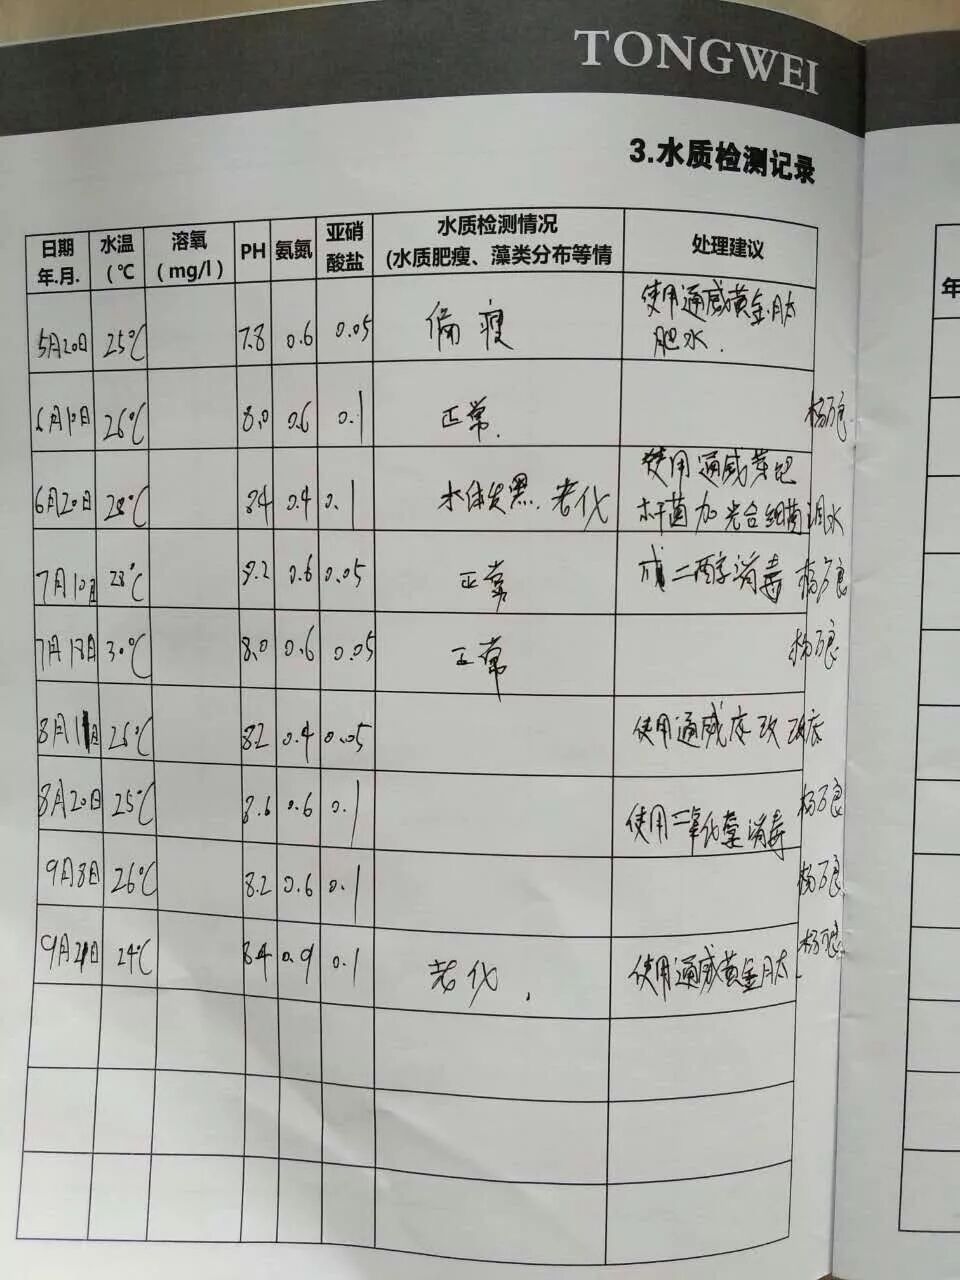 TONGWEI
3.水质检测记录
日期 年.月. 水温 (℃ 溶氧 (mg/l) PH 氨氮 亚硝酸盐 水质检测情况 (水质肥瘦、藻类分布等情 处理建议
年
5月20日 25℃ 7.8 0.6 0.05 偏瘦 使用通威黄金肽
肥水.
6月10日 26℃ 8.0 0.6 0.1 正常. 杨万良
6月20日 28℃ 8.4 0.4 0.1 水体发黑.老化 使用通威芽孢
杆菌加光合细菌调水
7月10日 28℃ 8.2 0.6 0.05 正常 戊二醇消毒 杨万良
7月18日 30℃ 8.0 0.6 0.05 正常 杨万良
8月1日 26℃ 8.2 0.4 0.05 使用通威底改改底
8月20日 25℃ 8.6 0.6 0.1 使用二氧化氯消毒 杨万良
9月8日 26℃ 8.2 0.6 0.1 杨万良
9月21日 24℃ 8.4 0.9 0.1 老化. 使用通威黄金肽. 杨万良